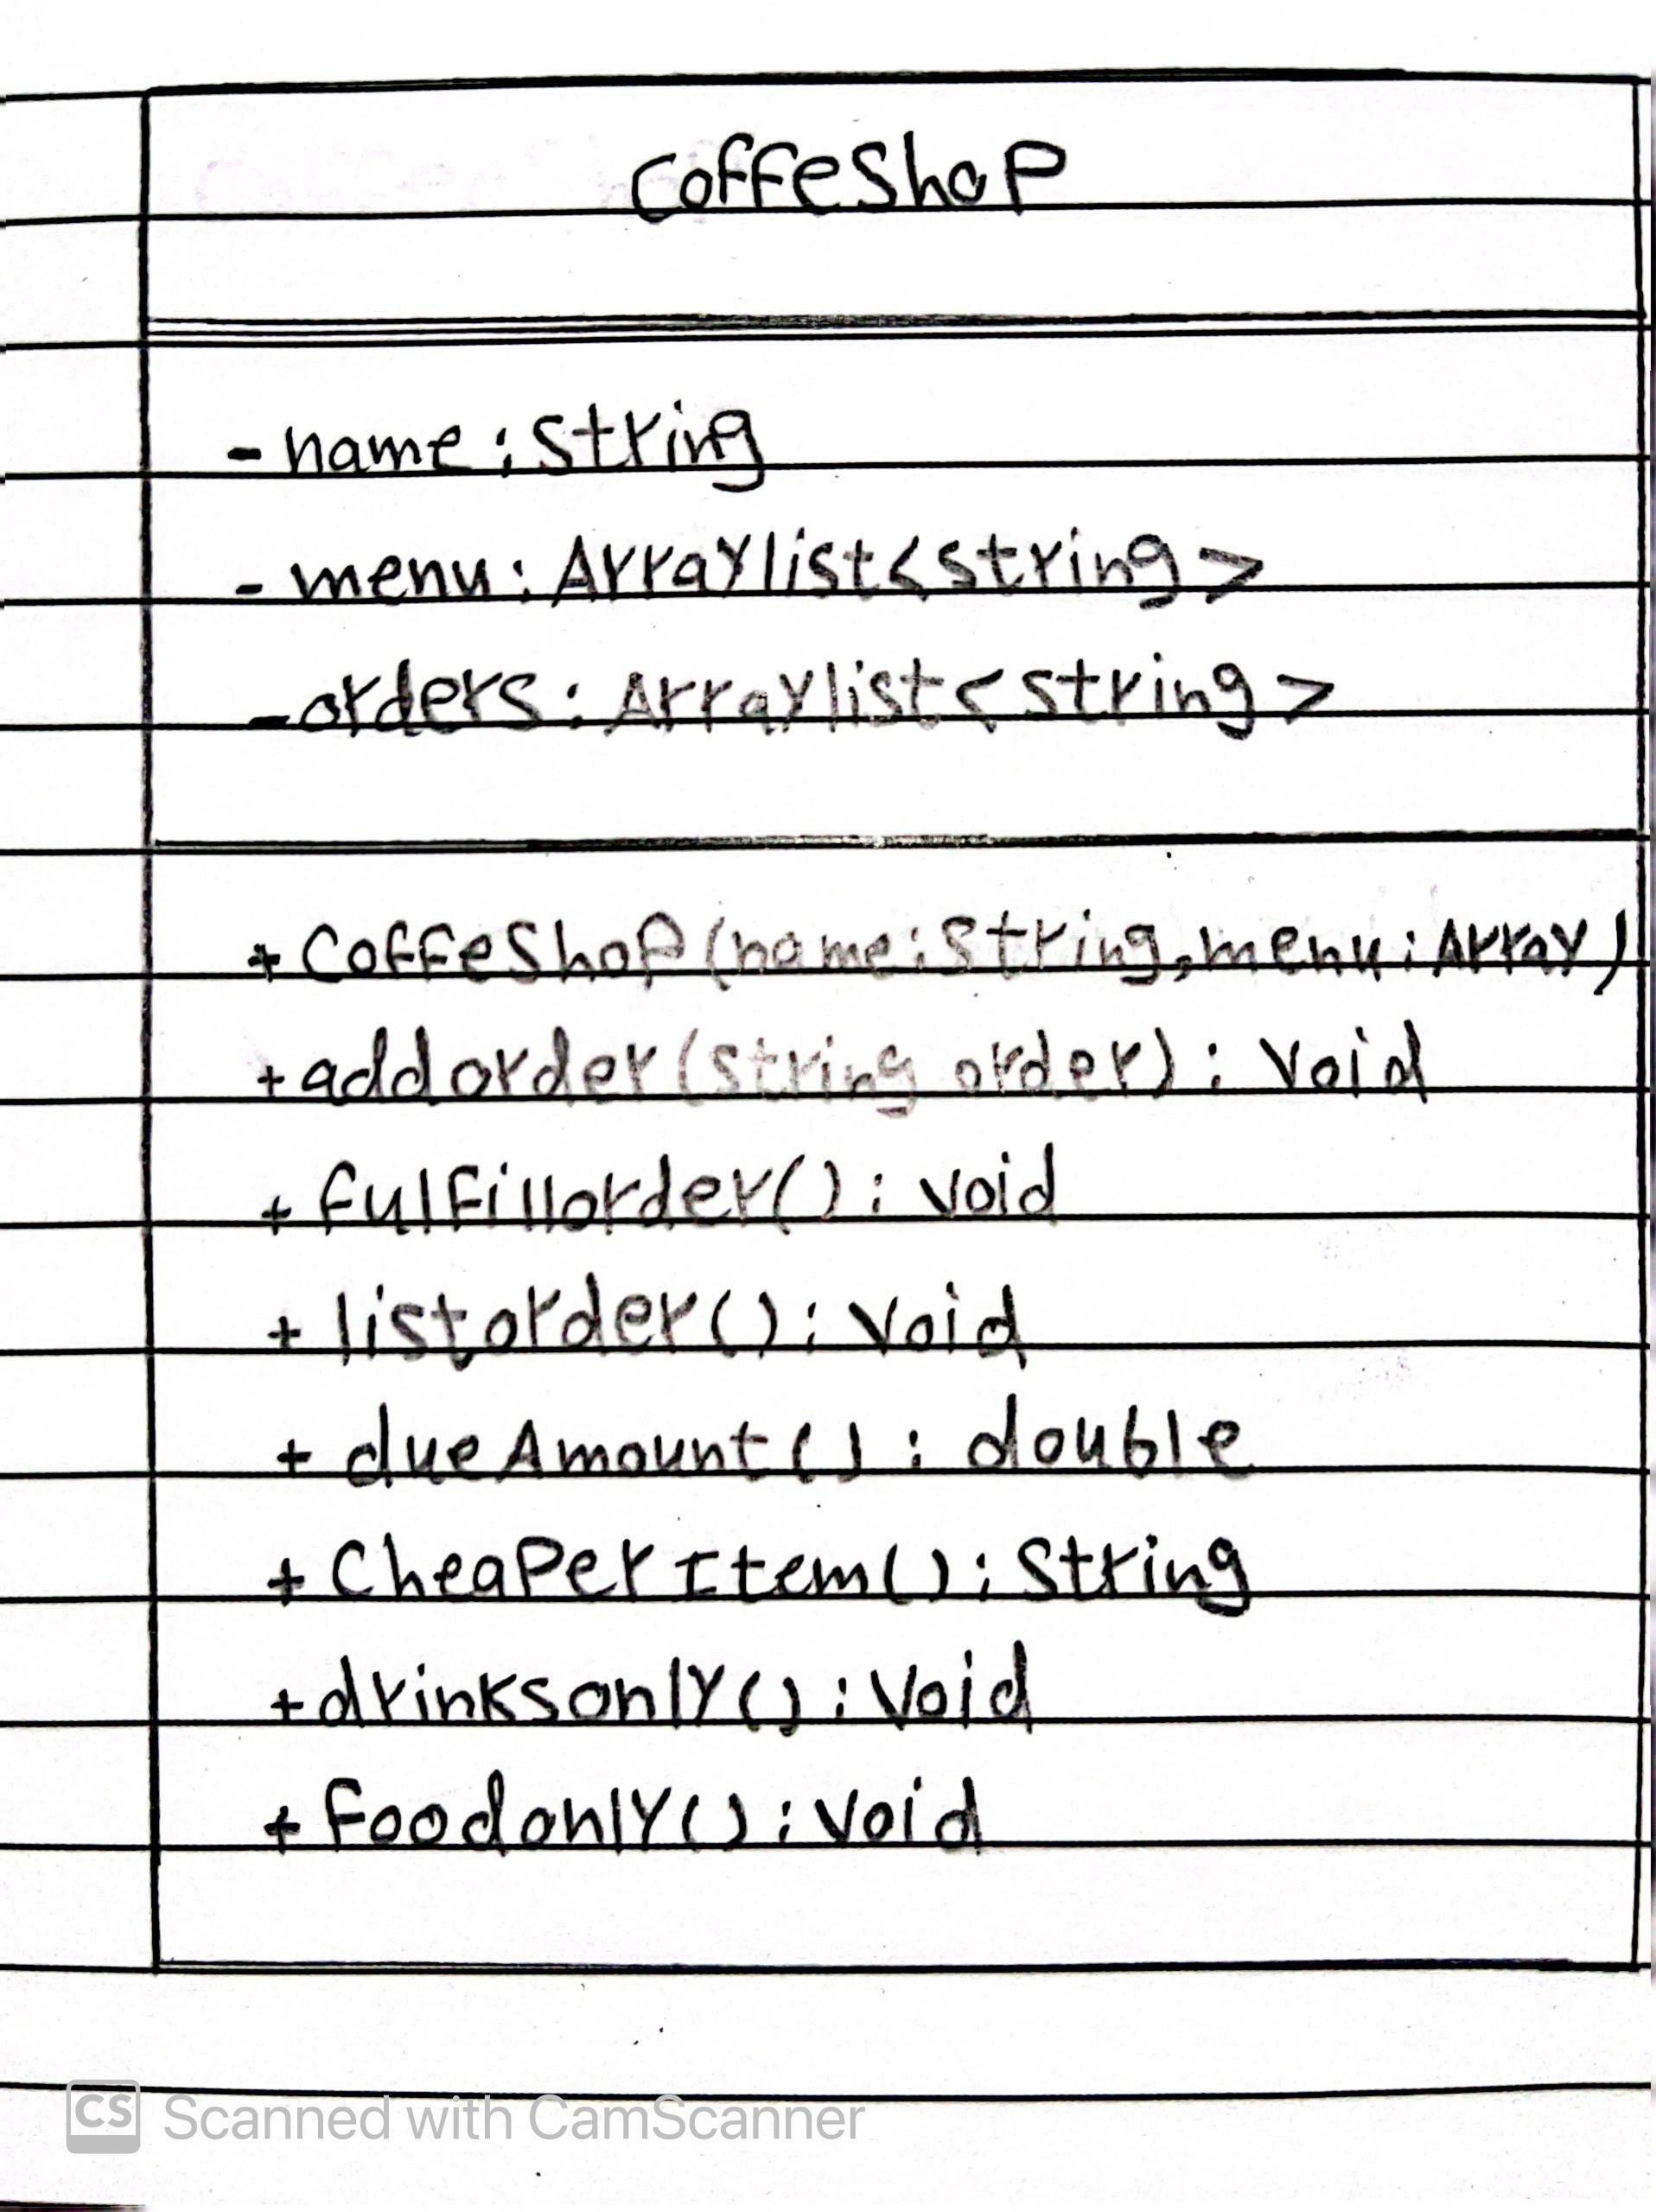 CoffeShop
- name : String
- menu : Arraylist<string>
- orders : Arraylist<string>
+ CoffeShop(name:String,menu:Array)
+ addorder(String order) : Void
+ fulfillorder() : void
+ listorder() : Void
+ dueAmount() : double
+ CheaperItem() : String
+ drinksonly() : Void
+ foodonly() : Void
CS Scanned with CamScanner